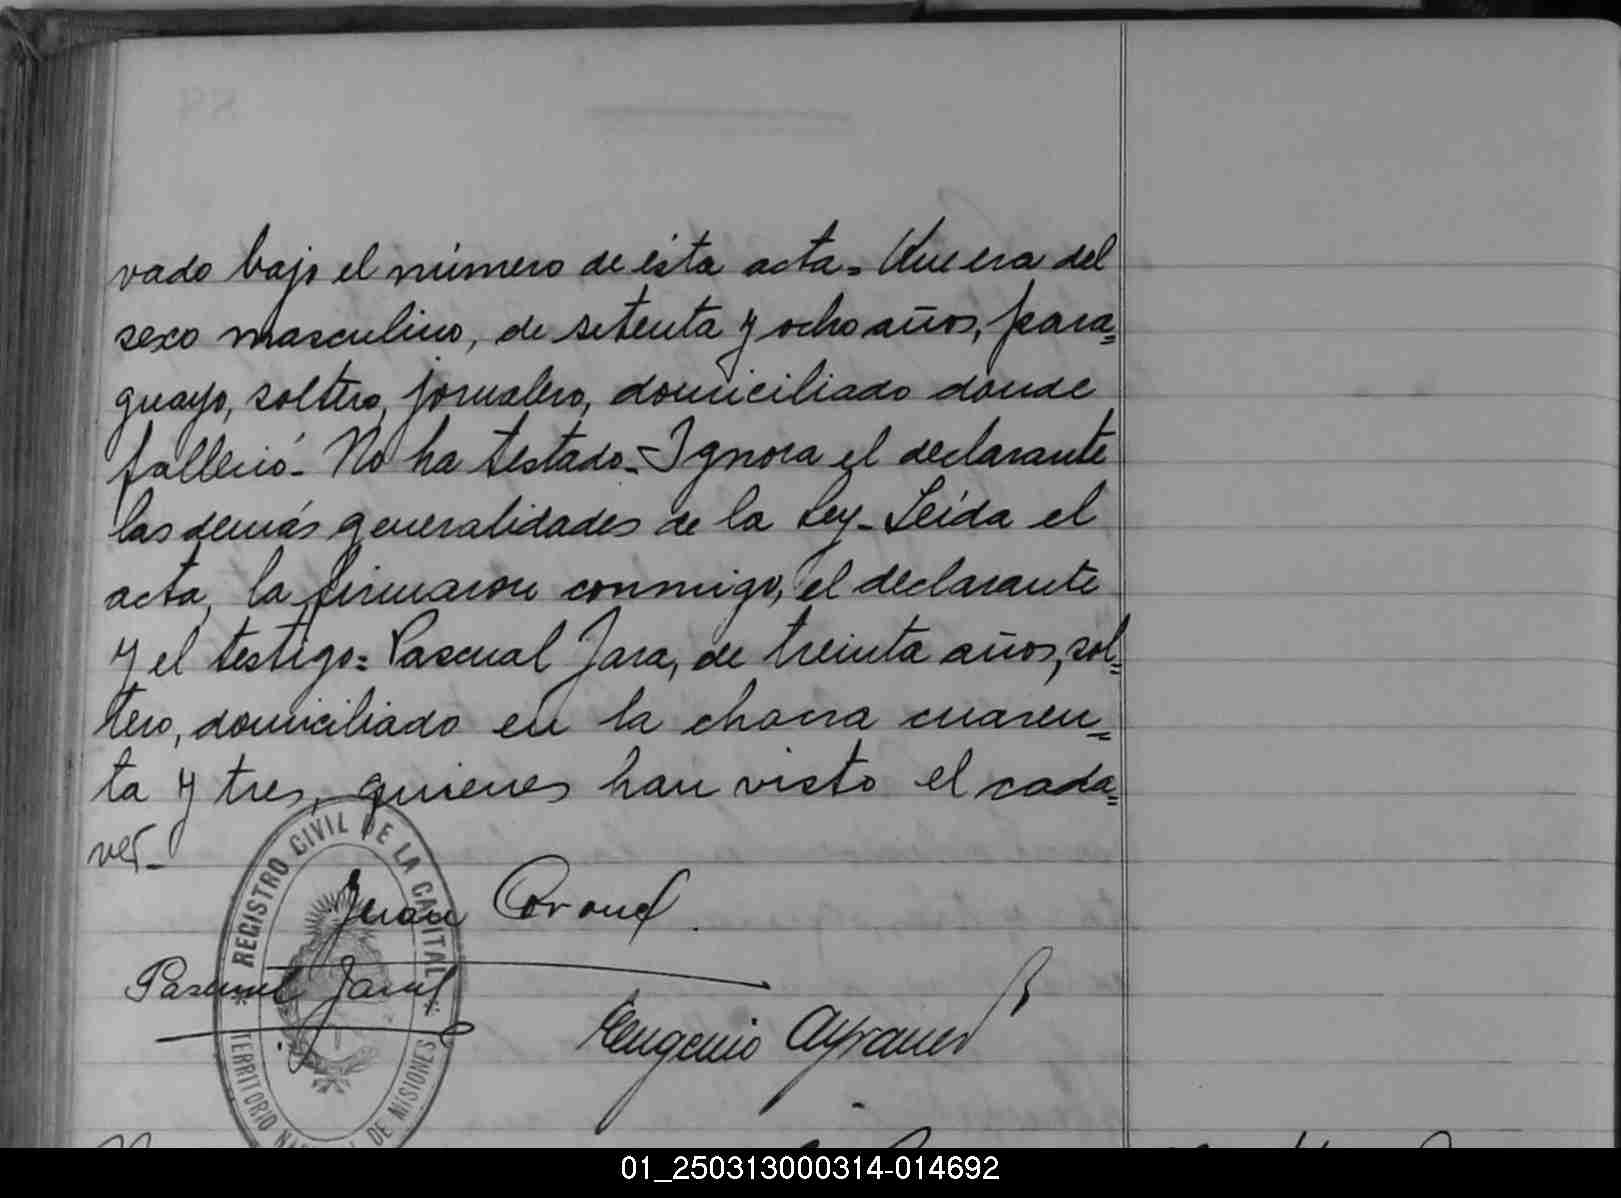 vado bajo el número de ésta acta= Que era del
sexo masculino, de setenta y ocho años, para=
guayo, soltero, jornalero, domiciliado donde
falleció- No ha testado- Ignora el declarante
las demás generalidades de la Ley- Leída el
acta, la firmaron conmigo, el declarante
y el testigo= Pascual Jara, de treinta años, sol=
tero, domiciliado en la chacra cuaren=
ta y tres, quienes han visto el cada=
ver-
REGISTRO CIVIL DE LA CAPITAL
Juan Coronel
Pascual Jara
Eugenio
TERRITORIO NACIONAL DE MISIONES
01_250313000314-014692